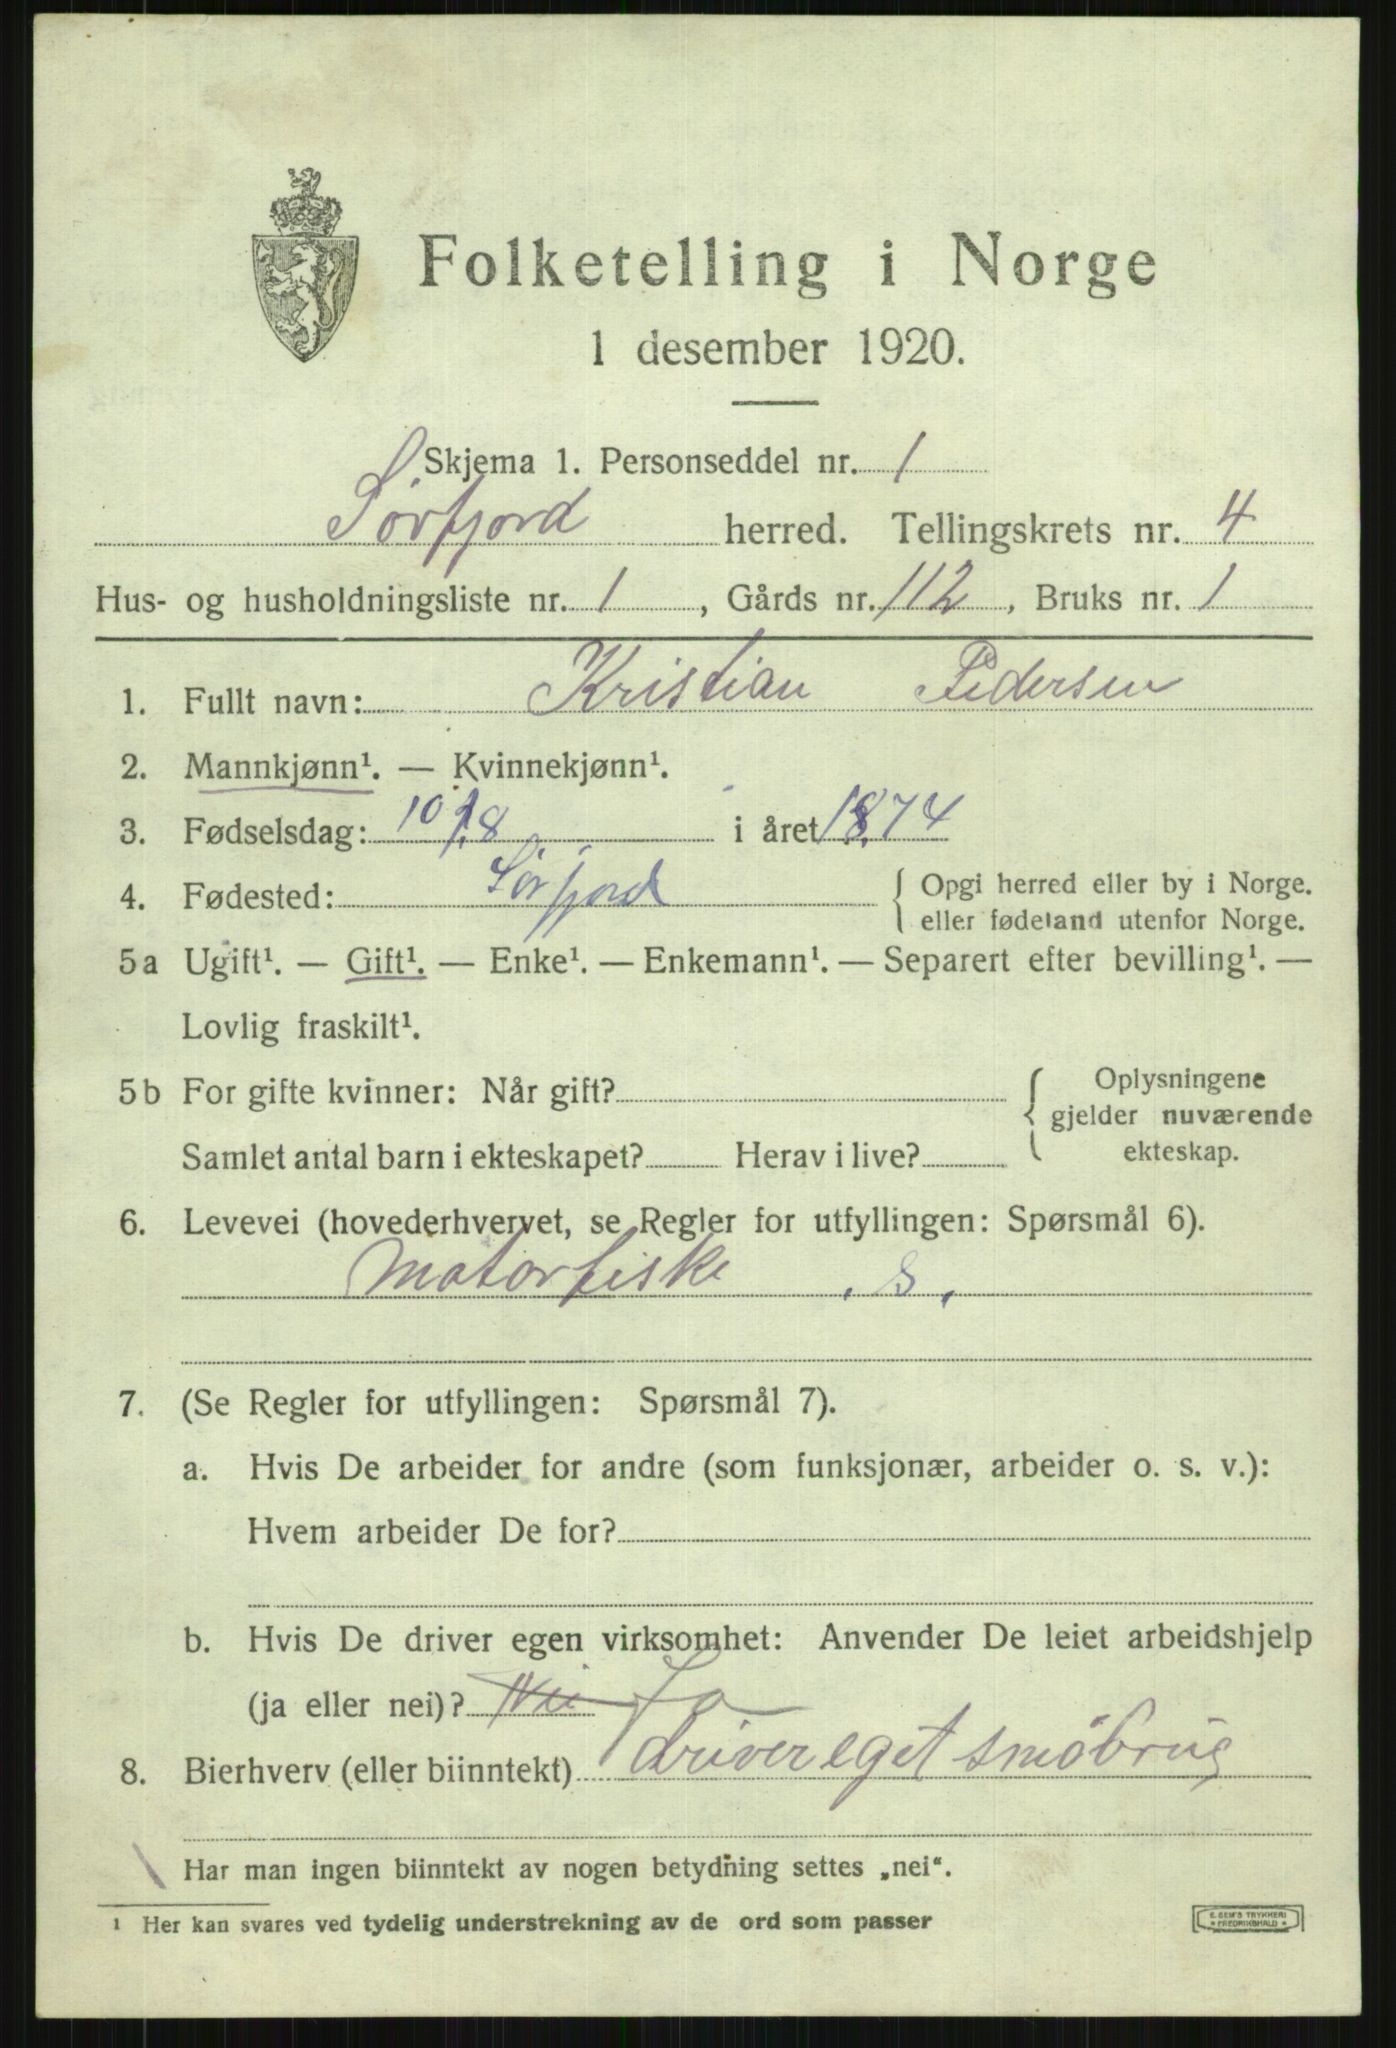 Folketelling i Norge
1 desember 1920.
Skjema 1. Personseddel nr. 1
Sørfjord herred. Tellingskrets nr. 4
Hus- og husholdningsliste nr. 1, Gårds nr. 112, Bruks nr. 1
1. Fullt navn: Kristian Pedersen
2. Mannkjønn¹. — Kvinnekjønn¹.
3. Fødselsdag: 10/8 i året 1874
4. Fødested: Sørfjord { Opgi herred eller by i Norge.
eller fødeland utenfor Norge.
5a Ugift¹. — Gift¹. — Enke¹. — Enkemann¹. — Separert efter bevilling¹. —
Lovlig fraskilt¹.
5b For gifte kvinner: Når gift? { Oplysningene
gjelder nuværende
Samlet antal barn i ekteskapet? Herav i live? ekteskap.
6. Levevei (hovederhvervet, se Regler for utfyllingen: Spørsmål 6).
Motorfiske . s.
7. (Se Regler for utfyllingen: Spørsmål 7).
a. Hvis De arbeider for andre (som funksjonær, arbeider o. s. v.):
Hvem arbeider De for?
b. Hvis De driver egen virksomhet: Anvender De leiet arbeidshjelp
(ja eller nei)? Nei Ja
8. Bierhverv (eller biinntekt) driver eget småbrug
Har man ingen biinntekt av nogen betydning settes „nei“.
¹ Her kan svares ved tydelig understrekning av de ord som passer
E. SEM'S TRYKKERI
* FREDRIKSHALD *